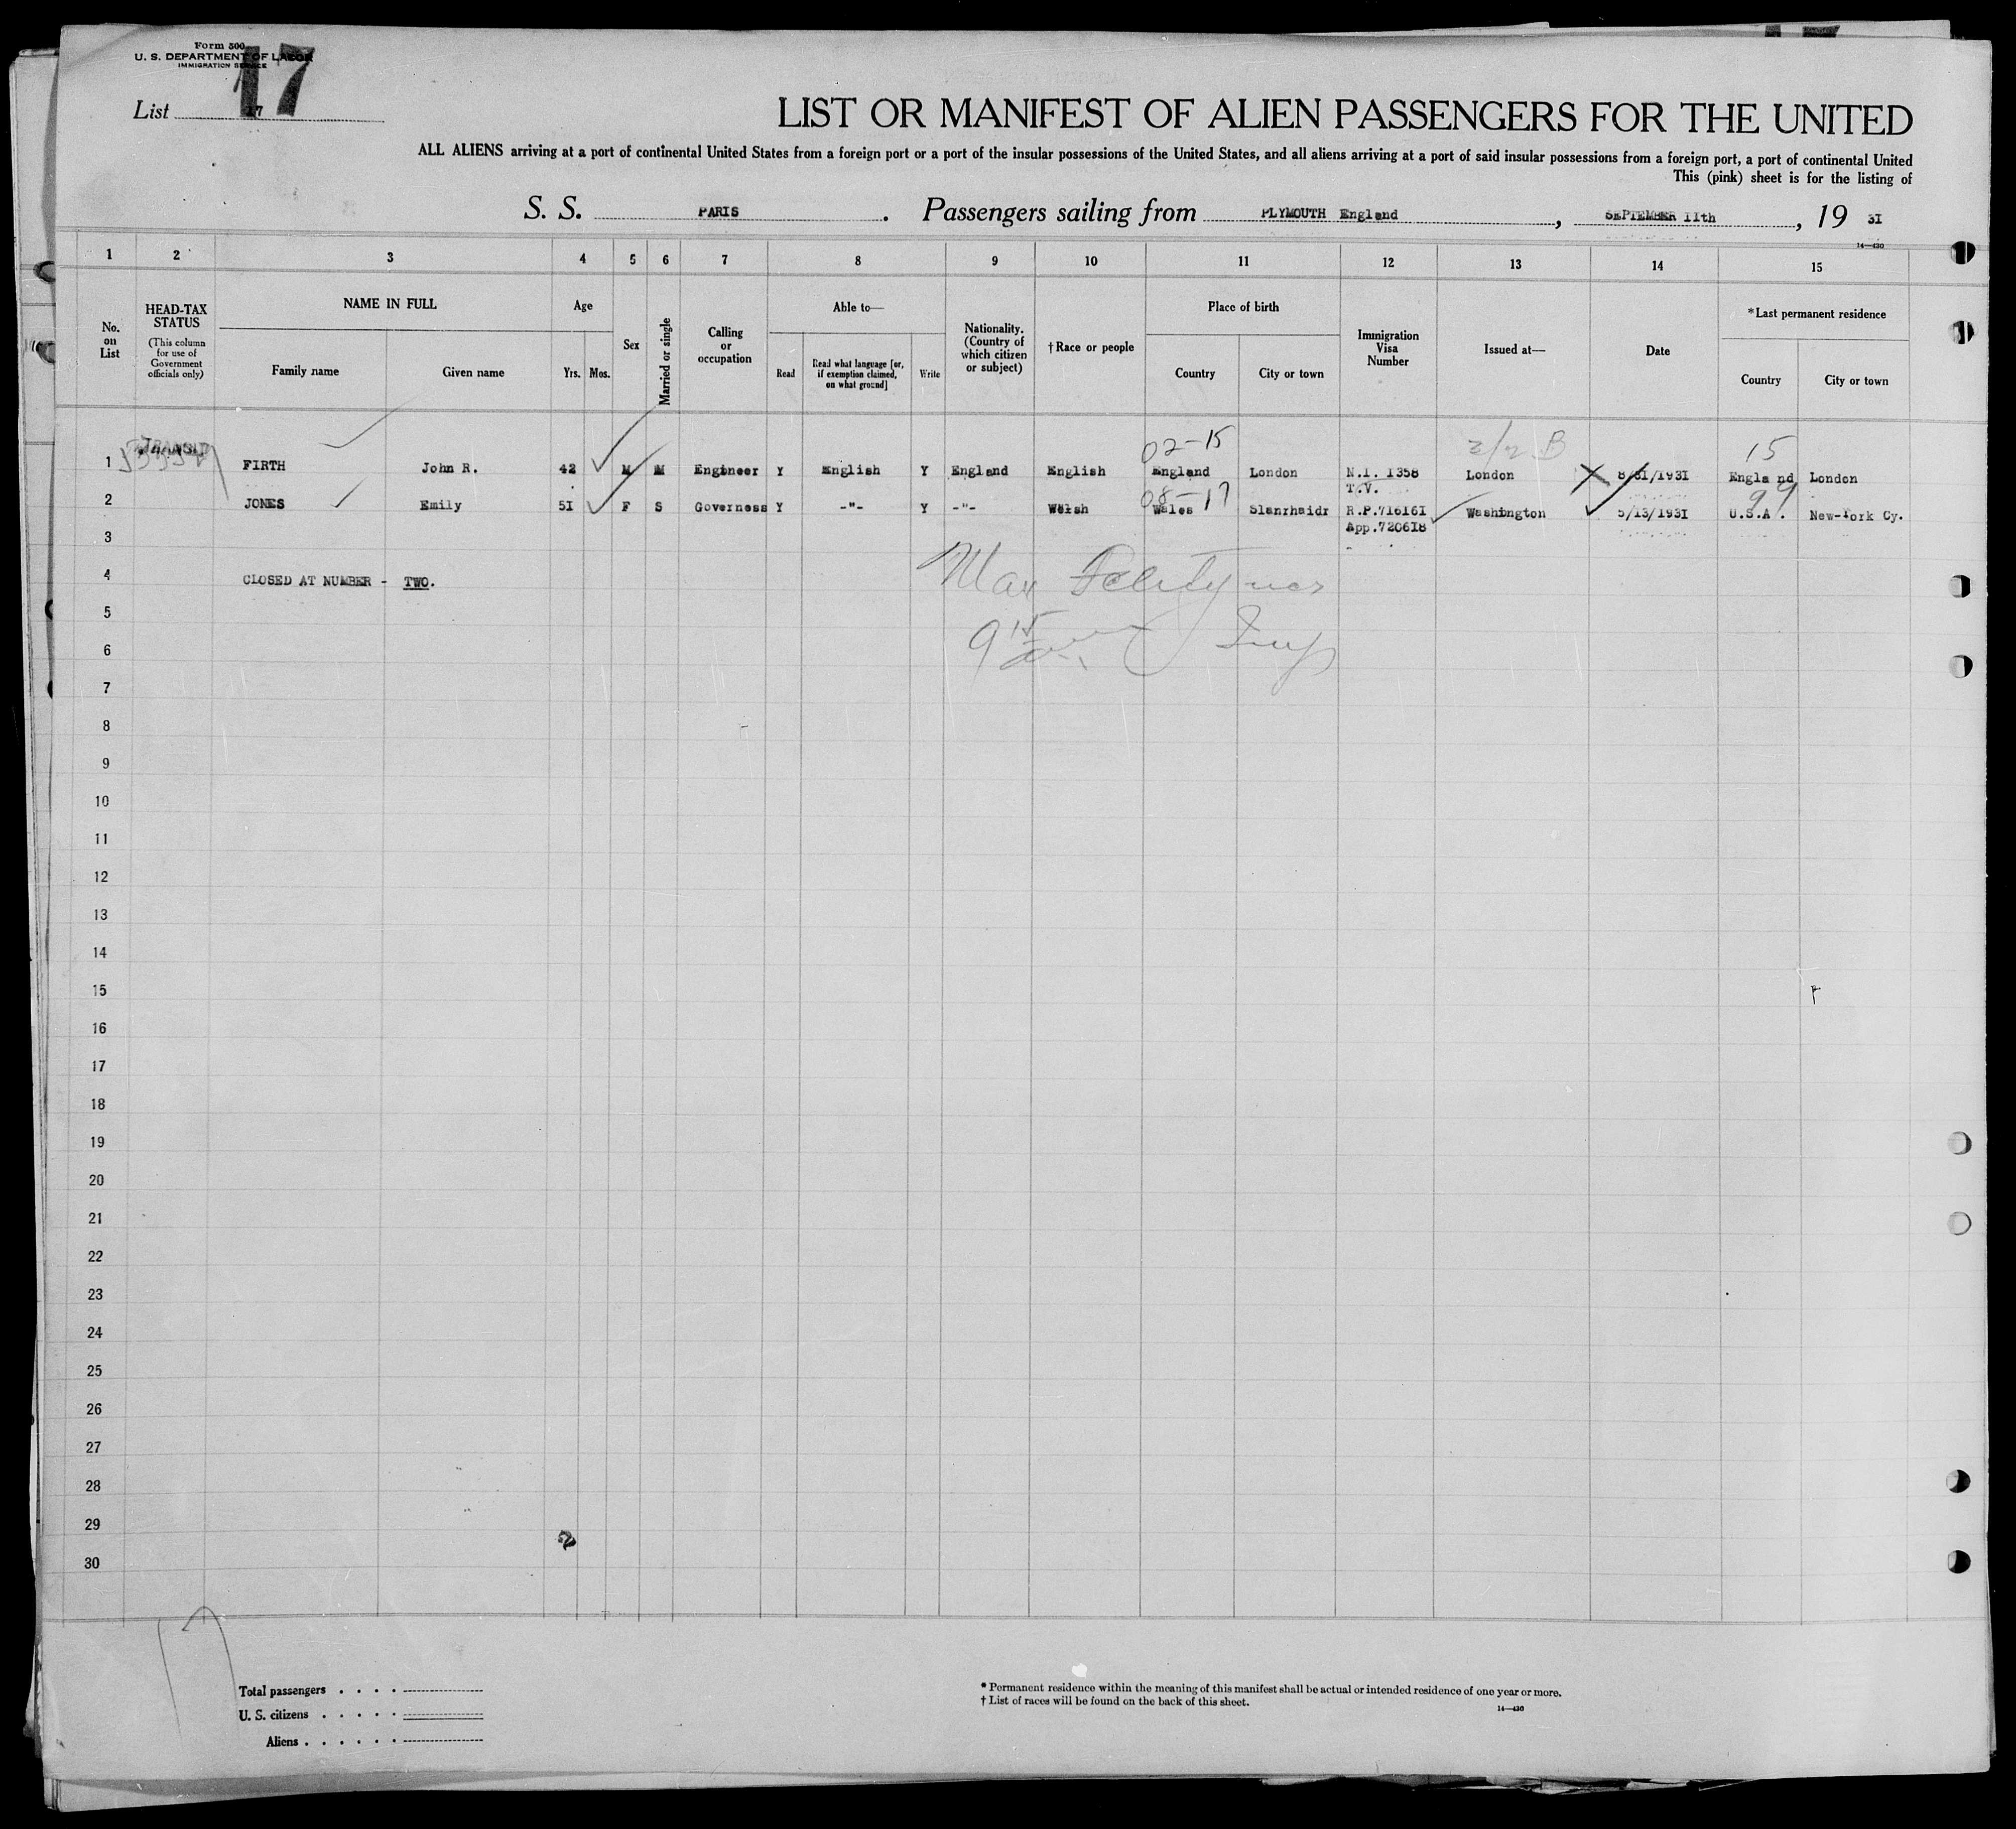 Form 500
U. S. DEPARTMENT OF LABOR
IMMIGRATION SERVICE
17
List 17
LIST OR MANIFEST OF ALIEN PASSENGERS FOR THE UNITED
ALL ALIENS arriving at a port of continental United States from a foreign port or a port of the insular possessions of the United States, and all aliens arriving at a port of said insular possessions from a foreign port, a port of continental United
This (pink) sheet is for the listing of
S. S. PARIS. Passengers sailing from PLYMOUTH England, SEPTEMBER 11th, 19 31
14—430
1 2 3 4 5 6 7 8 9 10 11 12 13 14 15
No. on List
HEAD-TAX STATUS
(This column for use of Government officials only)
NAME IN FULL
Family name
Given name
Age
Yrs. Mos.
Sex
Married or single
Calling or occupation
Able to—
Read
Read what language [or, if exemption claimed, on what ground]
Write
Nationality. (Country of which citizen or subject)
† Race or people
Place of birth
Country
City or town
Immigration Visa Number
Issued at—
Date
* Last permanent residence
Country
City or town
TRANSIT 02-15 15
1 FIRTH John R. 42 M M Engineer Y English Y England English England London N.I. I358 London 8/31/1931 Engla nd London
T.V.
08-17 99
2 JONES Emily 5I F S Governess Y -"- Y -"- Welsh Wales Slanrhaidr R.P.716161 Washington 5/13/1931 U.S.A. New-York Cy.
App.720618
3
4 CLOSED AT NUMBER - TWO.
5
6
7
8
9
10
11
12
13
14
15
16
17
18
19
20
21
22
23
24
25
26
27
28
29
30
17
Total passengers . . . .
U. S. citizens . . . . .
Aliens . . . . . .
* Permanent residence within the meaning of this manifest shall be actual or intended residence of one year or more.
† List of races will be found on the back of this sheet.
14—430